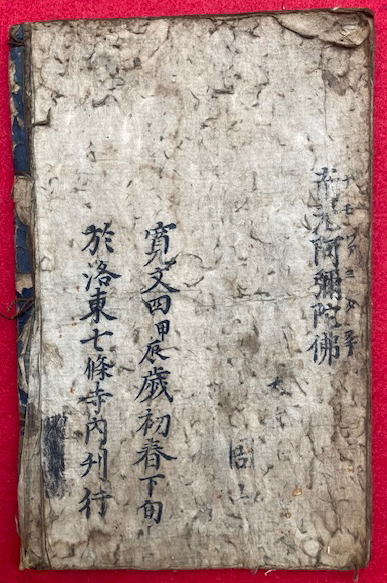 南無阿彌陀佛
寛文四甲辰歳初春下旬
於洛東七條寺内刋行